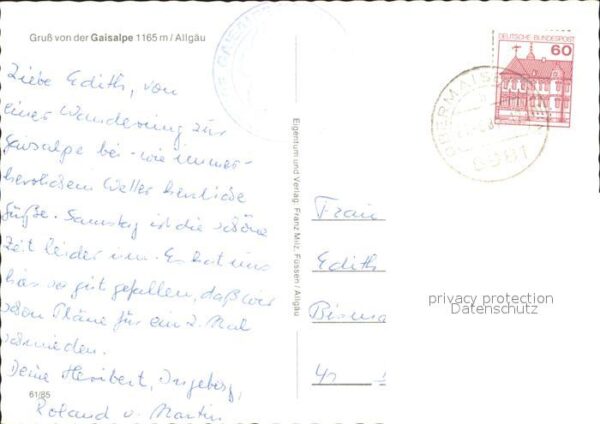 Gruß von der Gaisalpe 1165 m / Allgäu
Liebe Edith, von
einer Wanderung zur
Gaisalpe bei - wie immer -
herrlichem Wetter herzliche
Grüße. Samstag ist die schöne
Zeit leider um. Es hat uns
hier so gut gefallen, daß wir
schon Pläne für ein 2. Mal
schmieden.
Deine Heribert, Ingeborg,
Roland u. Martin
61/85
Eigentum und Verlag: Franz Milz, Füssen / Allgäu
DEUTSCHE BUNDESPOST
60
8981
Frau
Edith
Bisma
privacy protection
Datenschutz